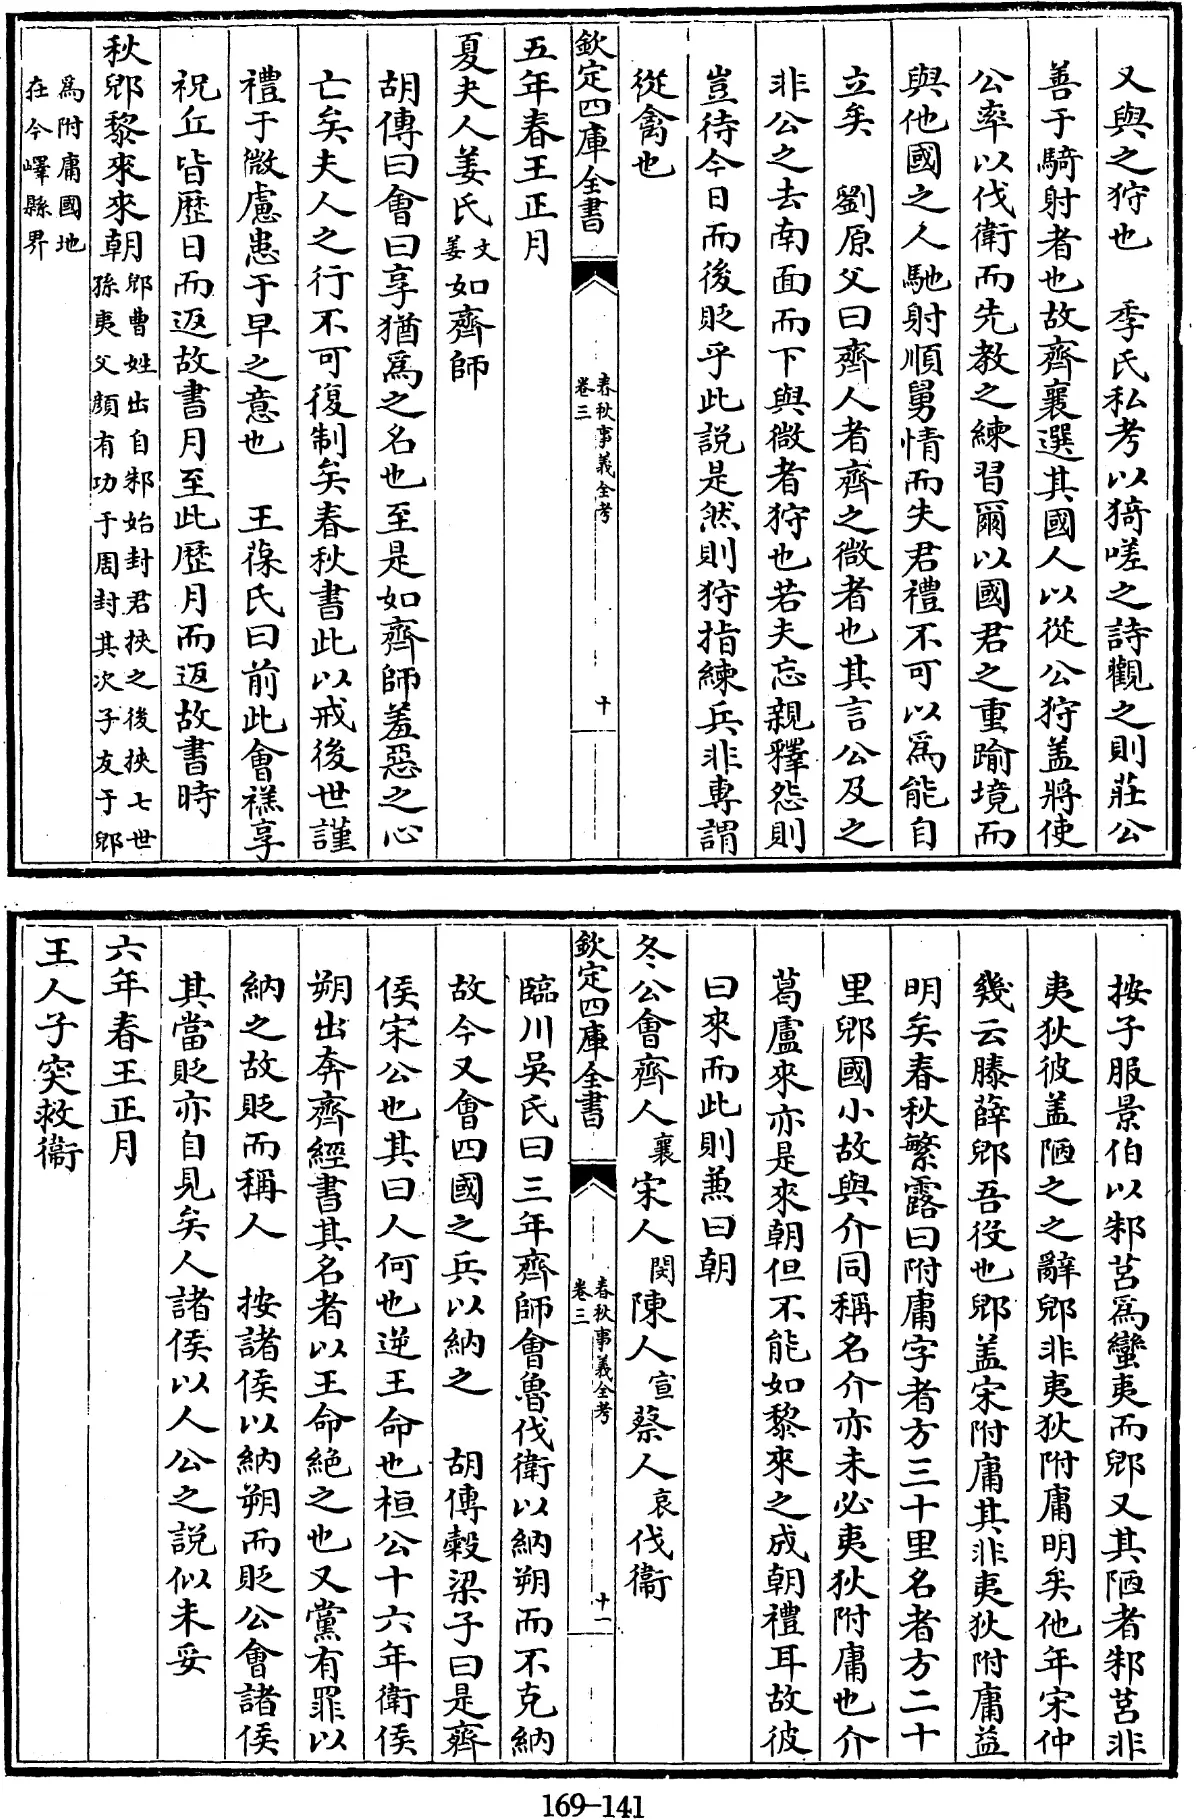 又與之狩也　季氏私考以猗嗟之詩觀之則莊公
善于騎射者也故齊襄選其國人以從公狩盖將使
公率以伐衛而先教之練習爾以國君之重踰境而
與他國之人馳射順舅情而失君禮不可以為能自
立矣　劉原父曰齊人者齊之微者也其言公及之
非公之去南面而下與微者狩也若夫忘親釋怨則
豈待今日而後貶乎此説是然則狩指練兵非專謂
從禽也
欽定四庫全書
春秋事義全考
卷三
十
五年春王正月
夏夫人姜氏文姜如齊師
胡傳曰會曰享猶為之名也至是如齊師羞惡之心
亡矣夫人之行不可復制矣春秋書此以戒後世謹
禮于微慮患于早之意也　王葆氏曰前此會禚享
祝丘皆歷日而返故書月至此歷月而返故書時
秋郳黎來來朝郳曹姓出自邾始封君挾之後挾七世
孫夷父顔有功于周封其次子友于郳
為附庸國地
在今嶧縣界
按子服景伯以邾莒為蠻夷而郳又其陋者邾莒非
夷狄彼盖陋之之辭郳非夷狄附庸明矣他年宋仲
幾云滕薛郳吾役也郳盖宋附庸其非夷狄附庸益
明矣春秋繁露曰附庸字者方三十里名者方二十
里郳國小故與介同稱名介亦未必夷狄附庸也介
葛盧來亦是來朝但不能如黎來之成朝禮耳故彼
曰來而此則兼曰朝
冬公會齊人襄宋人閔陳人宣蔡人哀伐衞
欽定四庫全書
春秋事義全考
卷三
十一
臨川吳氏曰三年齊師會魯伐衛以納朔而不克納
故今又會四國之兵以納之　胡傳穀梁子曰是齊
侯宋公也其曰人何也逆王命也桓公十六年衛侯
朔出奔齊經書其名者以王命絶之也又黨有罪以
納之故貶而稱人　按諸侯以納朔而貶公會諸侯
其當貶亦自見矣人諸侯以人公之説似未妥
六年春王正月
王人子突救衞
169-141